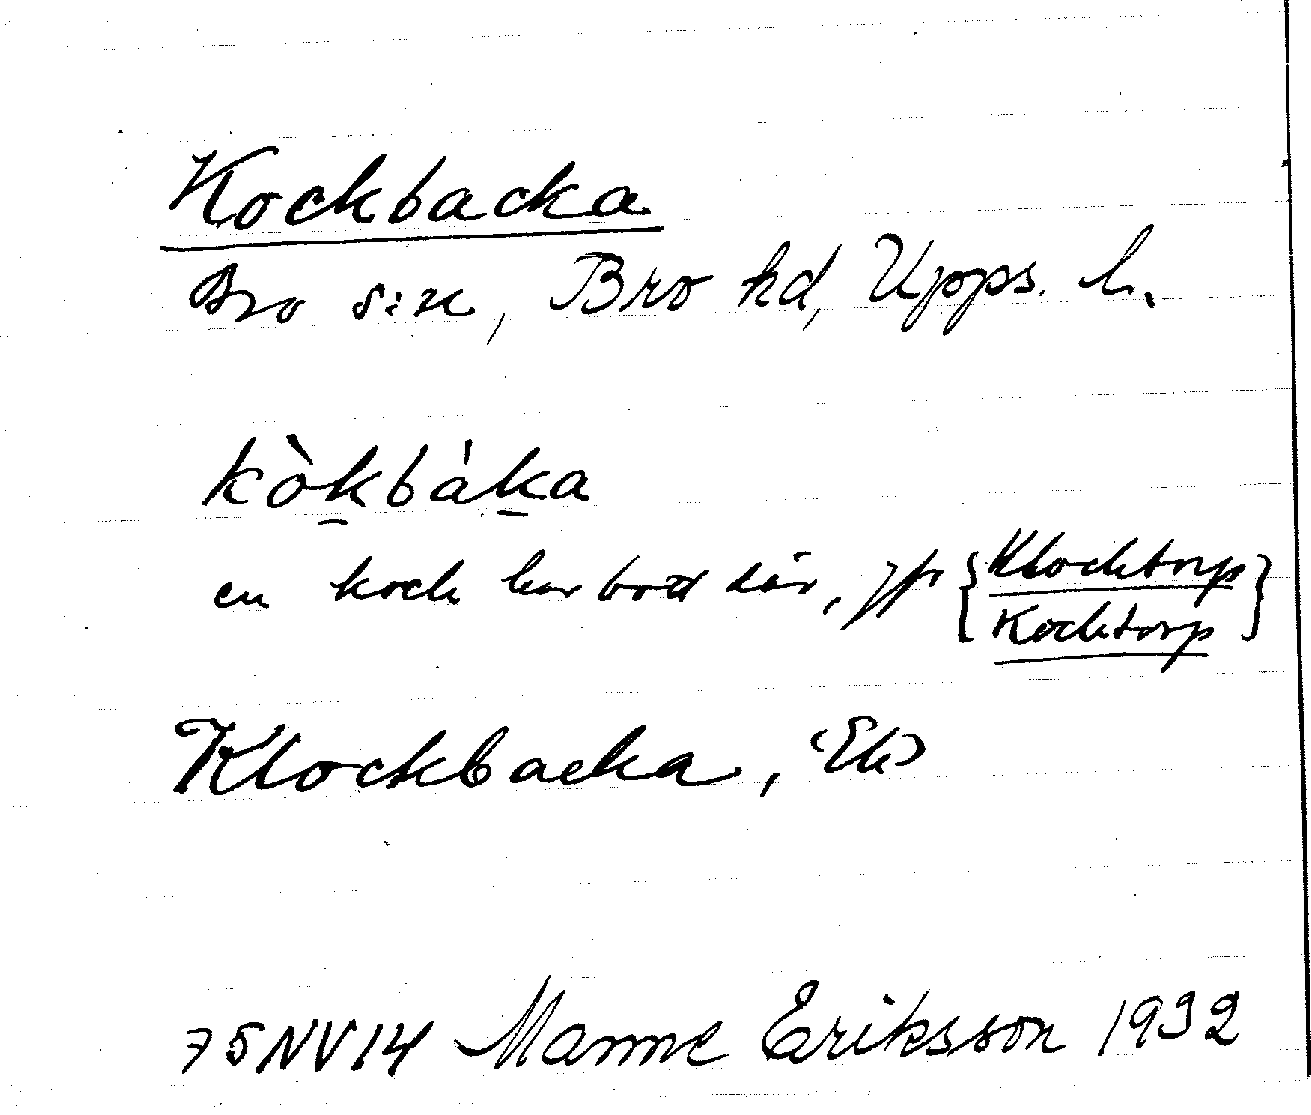 Kockbacka
Bro s:n, Bro hd, Upps. l.
kòkbáka
en kock har bott där, jfr {Klocktorp
Kocktorp}
Klockbacka, (Ek)
75NV14 Manne Eriksson 1932